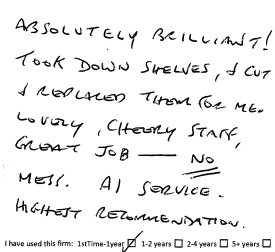 ABSOLUTELY BRILLIANT!
TOOK DOWN SHELVES, & CUT
& REPLACED THEM FOR ME.
LOVELY, CHEERY STAFF,
GREAT JOB — NO
MESS. A1 SERVICE.
HIGHEST RECOMMENDATION.
I have used this firm: 1stTime-1year ☑ 1-2 years ☐ 2-4 years ☐ 5+ years ☐